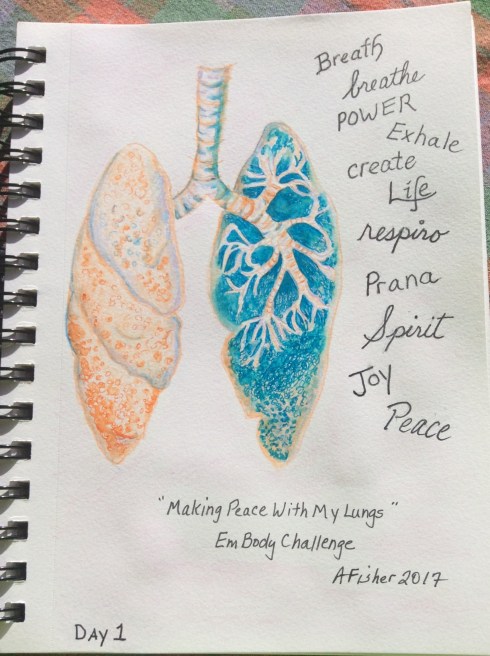 Breath
breathe
POWER
Exhale
create
Life
respiro
Prana
Spirit
JOY
Peace
"Making Peace With My Lungs"
EmBody Challenge
AFisher 2017
DAY 1